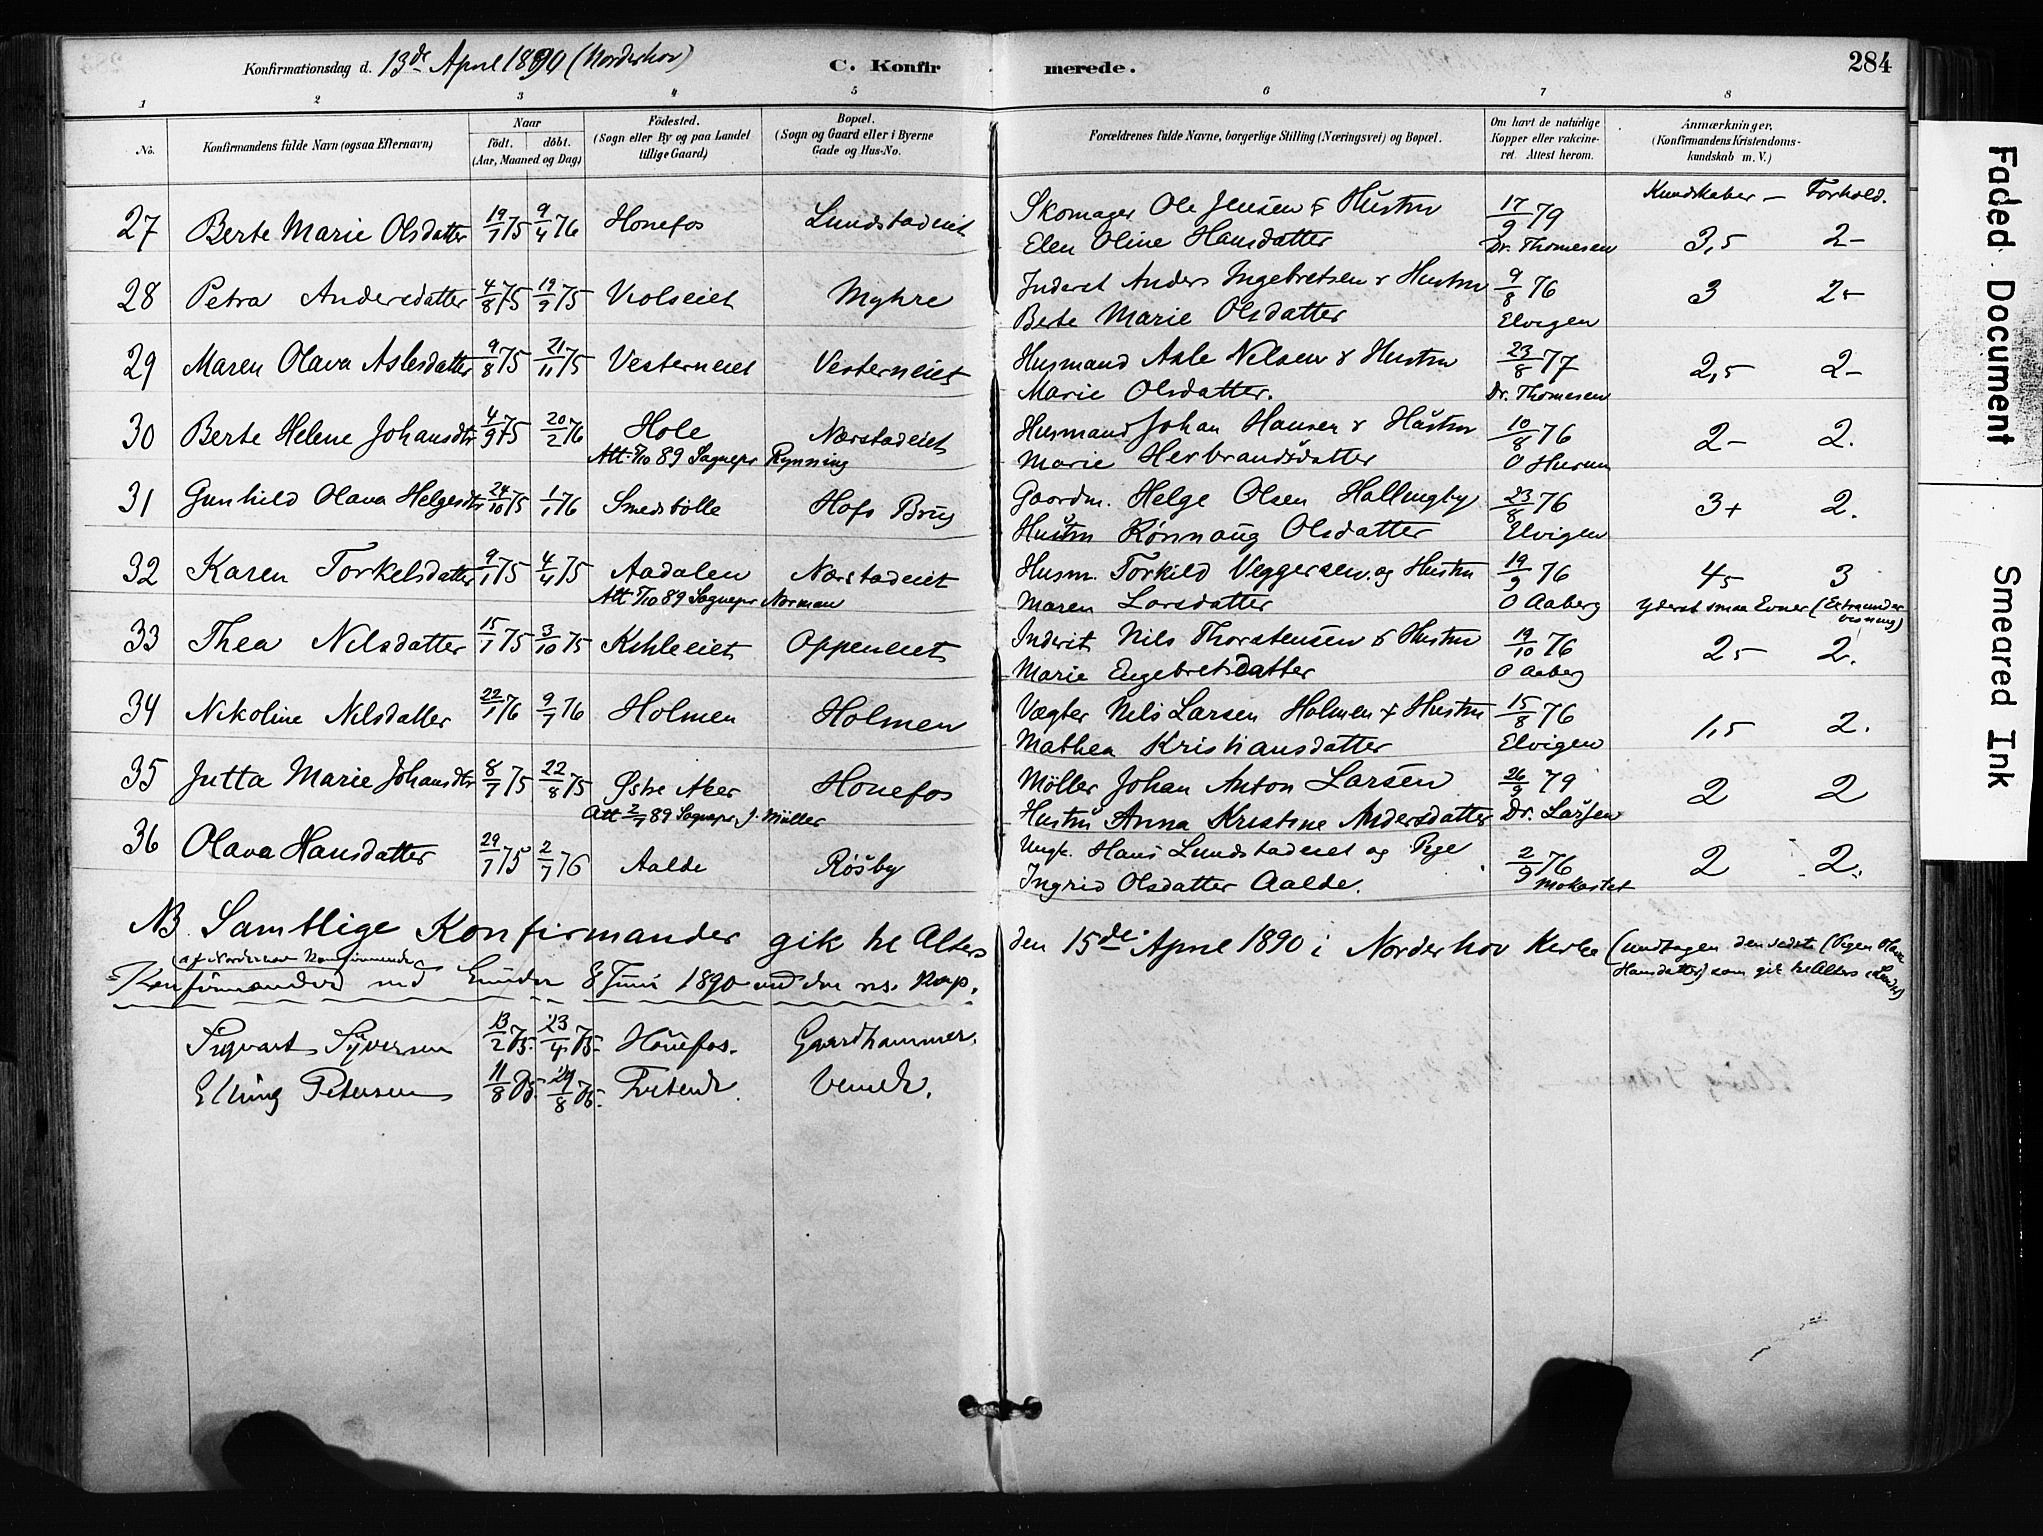 Konfirmationsdag d. 13de April 1890 (Norderhov) C. Konfirmerede. 284
1 2 3 4 5 6 7 8
No. Konfirmandens fulde Navn (ogsaa Efternavn) Naar født. døbt. (Aar, Maaned og Dag) Fødested. (Sogn eller By og paa Landet tillige Gaard) Bopæl. (Sogn og Gaard eller i Byerne Gade og Hus-No. Forældrenes fulde Navne, borgerlige Stilling (Næringsvei) og Bopæl. Om havt de naturlige Kopper eller vakcineret. Attest herom. Anmærkninger. (Konfirmandens Kristendomskundskab m. V.)
Kundskaber – Forhold.
27 Berte Marie Olsdatter 19/7 75 9/4 76 Hønefos Lundstadeiet Skomager Ole Jensen & Hustru 17/9 79
Elen Oline Hansdatter Dr. Thomesen 3,5 2-
28 Petra Andersdatter 4/8 75 19/9 75 Violseiet Myhre Inderst Anders Ingebretsen & Hustru 9/8 76 3 2-
Berte Marie Olsdatter Elvigen
29 Maren Olava Aslesdatter 9/8 75 21/11 75 Vesterneiet Vesterneiet Husmand Asle Nilsen & Hustru 23/8 77 2,5 2-
Marie Olsdatter. Dr. Thomesen
30 Berte Helene Johansdtr 4/9 75 20/2 76 Hole Nærstadeiet Husmand Johan Hansen & Hustru 10/8 76 2- 2.
Att. 89 Sognepr Rynning Marie Herbrandsdatter O Husum
31 Gunhild Olava Helgesdtr 24/10 75 1/1 76 Smedbølle Hofs Brug Gaardm. Helge Olsen Hallingby 23/8 76 3+ 2.
Hustru Rønnaug Olsdatter Elvigen
32 Karen Torkelsdatter 9/1 75 4/4 75 Aadalen Nærstadeiet Husm. Torkild Veggersen og Hustru 19/9 76 4- 3
Att 89 Sognepr Norman Maren Larsdatter O Aaberg yderst smaa Evner (Extraundervisning)
33 Thea Nilsdatter 15/1 75 3/10 75 Kihleeiet Oppeneiet Inderst Nils Thorstensen & Hustru 19/10 76 2- 2.
Marie Engebretsdatter O Aaberg
34 Nikoline Nilsdatter 22/1 76 9/7 76 Holmen Holmen Vægter Nils Larsen Holmen & Hustru 15/8 76 1,5 2.
Mathea Kristiansdatter Elvigen
35 Jutta Marie Johansdtr 8/7 75 22/8 75 Østre Aker Hønefos Møller Johan Anton Larsen 26/9 79 2 2
Att 2/7 89 Sognepr. J. Müller Hustru Anna Kristine Andersdatter Dr. Larsen
36 Olava Hansdatter 29/7 75 2/7 76 Aalde Røsby Ungk. Hans Lundstadeiet og Pige 2/9 76 2 2.
Ingrid Olsdatter Aalde. Mokastet
NB. Samtlige Konfirmander gik til Alters den 15de April 1890 i Norderhov Kirke (undtagen den sidste (Pigen Olava
af Norderhov Hansdatter) som gik til Alters i Lunder)
Konfirmander ved Lunder 8 Juni 1890 ved den res. Kap.
Sigvart Syversen 13/2 75. 23/4 75. Hønefos. Gaardhammer.
Elling Petersen 11/8 75. 29/8 75. Tvetende. Vemde.
Faded Document
Smeared Ink